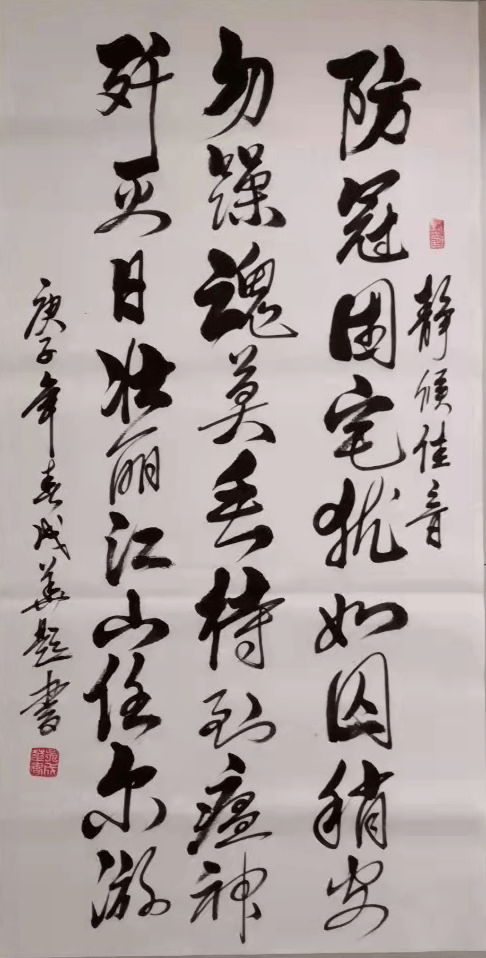 静候佳音
防冠困宅犹如囚稍安
勿躁魂莫丢待到瘟神
歼灭日壮丽江山任尔游
庚子年春成华题书